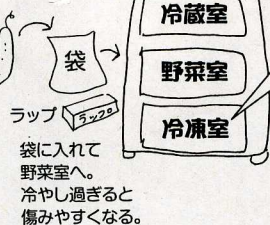 冷蔵室
袋
野菜室
ラップ
ラップ
冷凍室
袋に入れて
野菜室へ。
冷やし過ぎると
傷みやすくなる。